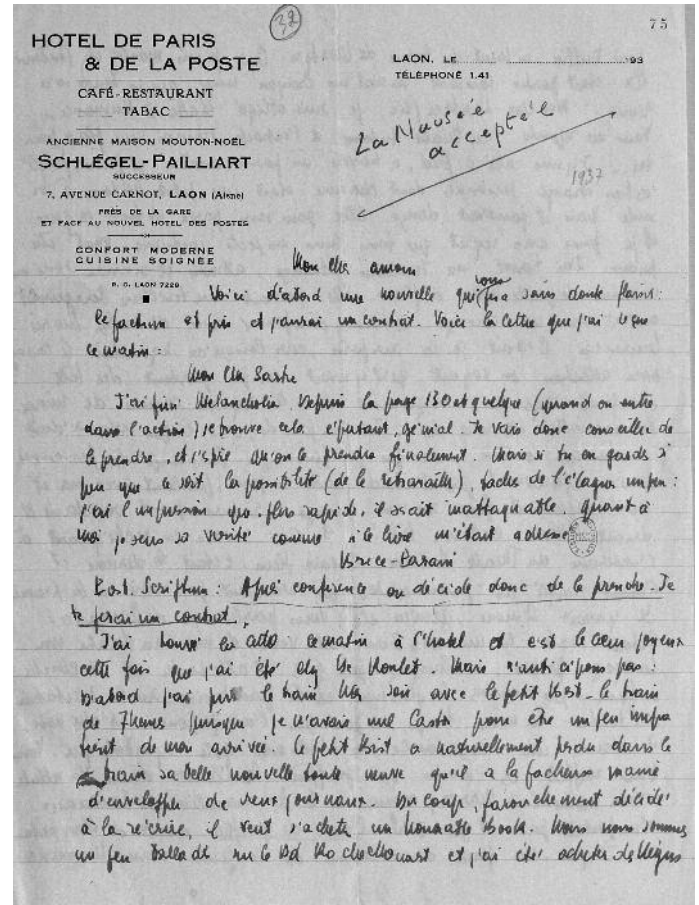 32
75
HOTEL DE PARIS
& DE LA POSTE
CAFÉ-RESTAURANT
TABAC
ANCIENNE MAISON MOUTON-NOËL
SCHLÉGEL-PAILLIART
SUCCESSEUR
7, AVENUE CARNOT, LAON (Aisne)
PRÈS DE LA GARE
ET FACE AU NOUVEL HOTEL DES POSTES
CONFORT MODERNE
CUISINE SOIGNÉE
R. C. LAON 7229
LAON, LE 193
TÉLÉPHONE 1.41
La Nausée
acceptée
1937
Mon cher amour
Voici d'abord une nouvelle qui vous fera sans doute plaisir :
le factum est pris et j'aurai un contrat. Voici la lettre que j'ai reçue
ce matin :
Mon cher Sartre
J'ai fini Melancholia. Depuis la page 130 et quelque (quand on entre
dans l'action) je trouve cela épatant, génial. Je vais donc conseiller de
le prendre, et j'espère qu'on le prendra finalement. Mais si tu en gardes si
peu que ce soit la possibilité (de le retravailler), tâche de l'élaguer un peu :
j'ai l'impression que, plus rapide, il serait inattaquable. Quant à
moi je sens sa vérité comme si le livre m'était adressé
Brice-Parain
Post. Scriptum : Après conférence on décide donc de le prendre. Je
te ferai un contrat.
J'ai trouvé la lettre ce matin à l'hôtel et c'est le cœur joyeux
cette fois que j'ai été chez Mme Morel. Mais n'anticipons pas :
D'abord j'ai pris le train hier soir avec le petit Bost - le train
de 7 heures puisque je n'avais nul Castor pour être un peu impa
tient de mon arrivée. Le petit Bost a naturellement perdu dans le
train sa belle nouvelle toute neuve qu'il a la fâcheuse manie
d'envelopper de vieux journaux. Du coup, farouchement décidé
à la récrire, il veut s'acheter un honorable Book. Nous nous sommes
un peu balladé sur le Bd Rochechouart et j'ai été acheter